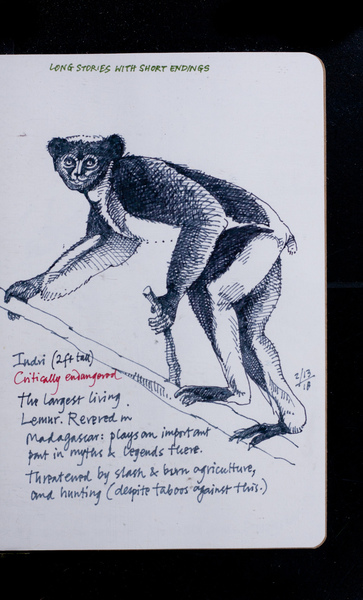 LONG STORIES WITH SHORT ENDINGS
2/13
18
Indri (2ft tall)
Critically endangered
The largest living
Lemur. Revered in
Madagascar: plays an important
part in myths & legends there.
Threatened by slash & burn agriculture,
and hunting (despite taboos against this.)